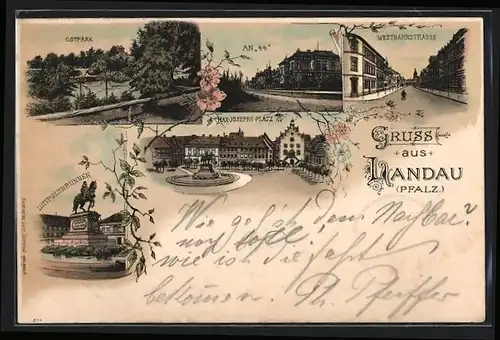 OSTPARK
AN „44“
WESTBAHNSTRASSE
MAX-JOSEPHS-PLATZ
GRUSS
aus
LANDAU
(PFALZ.)
LUITPOLDBRUNNEN
Wie geht's dem Nachbar?
noch
wie ist die Fahrt
bekommen. Th. Pfeiffer